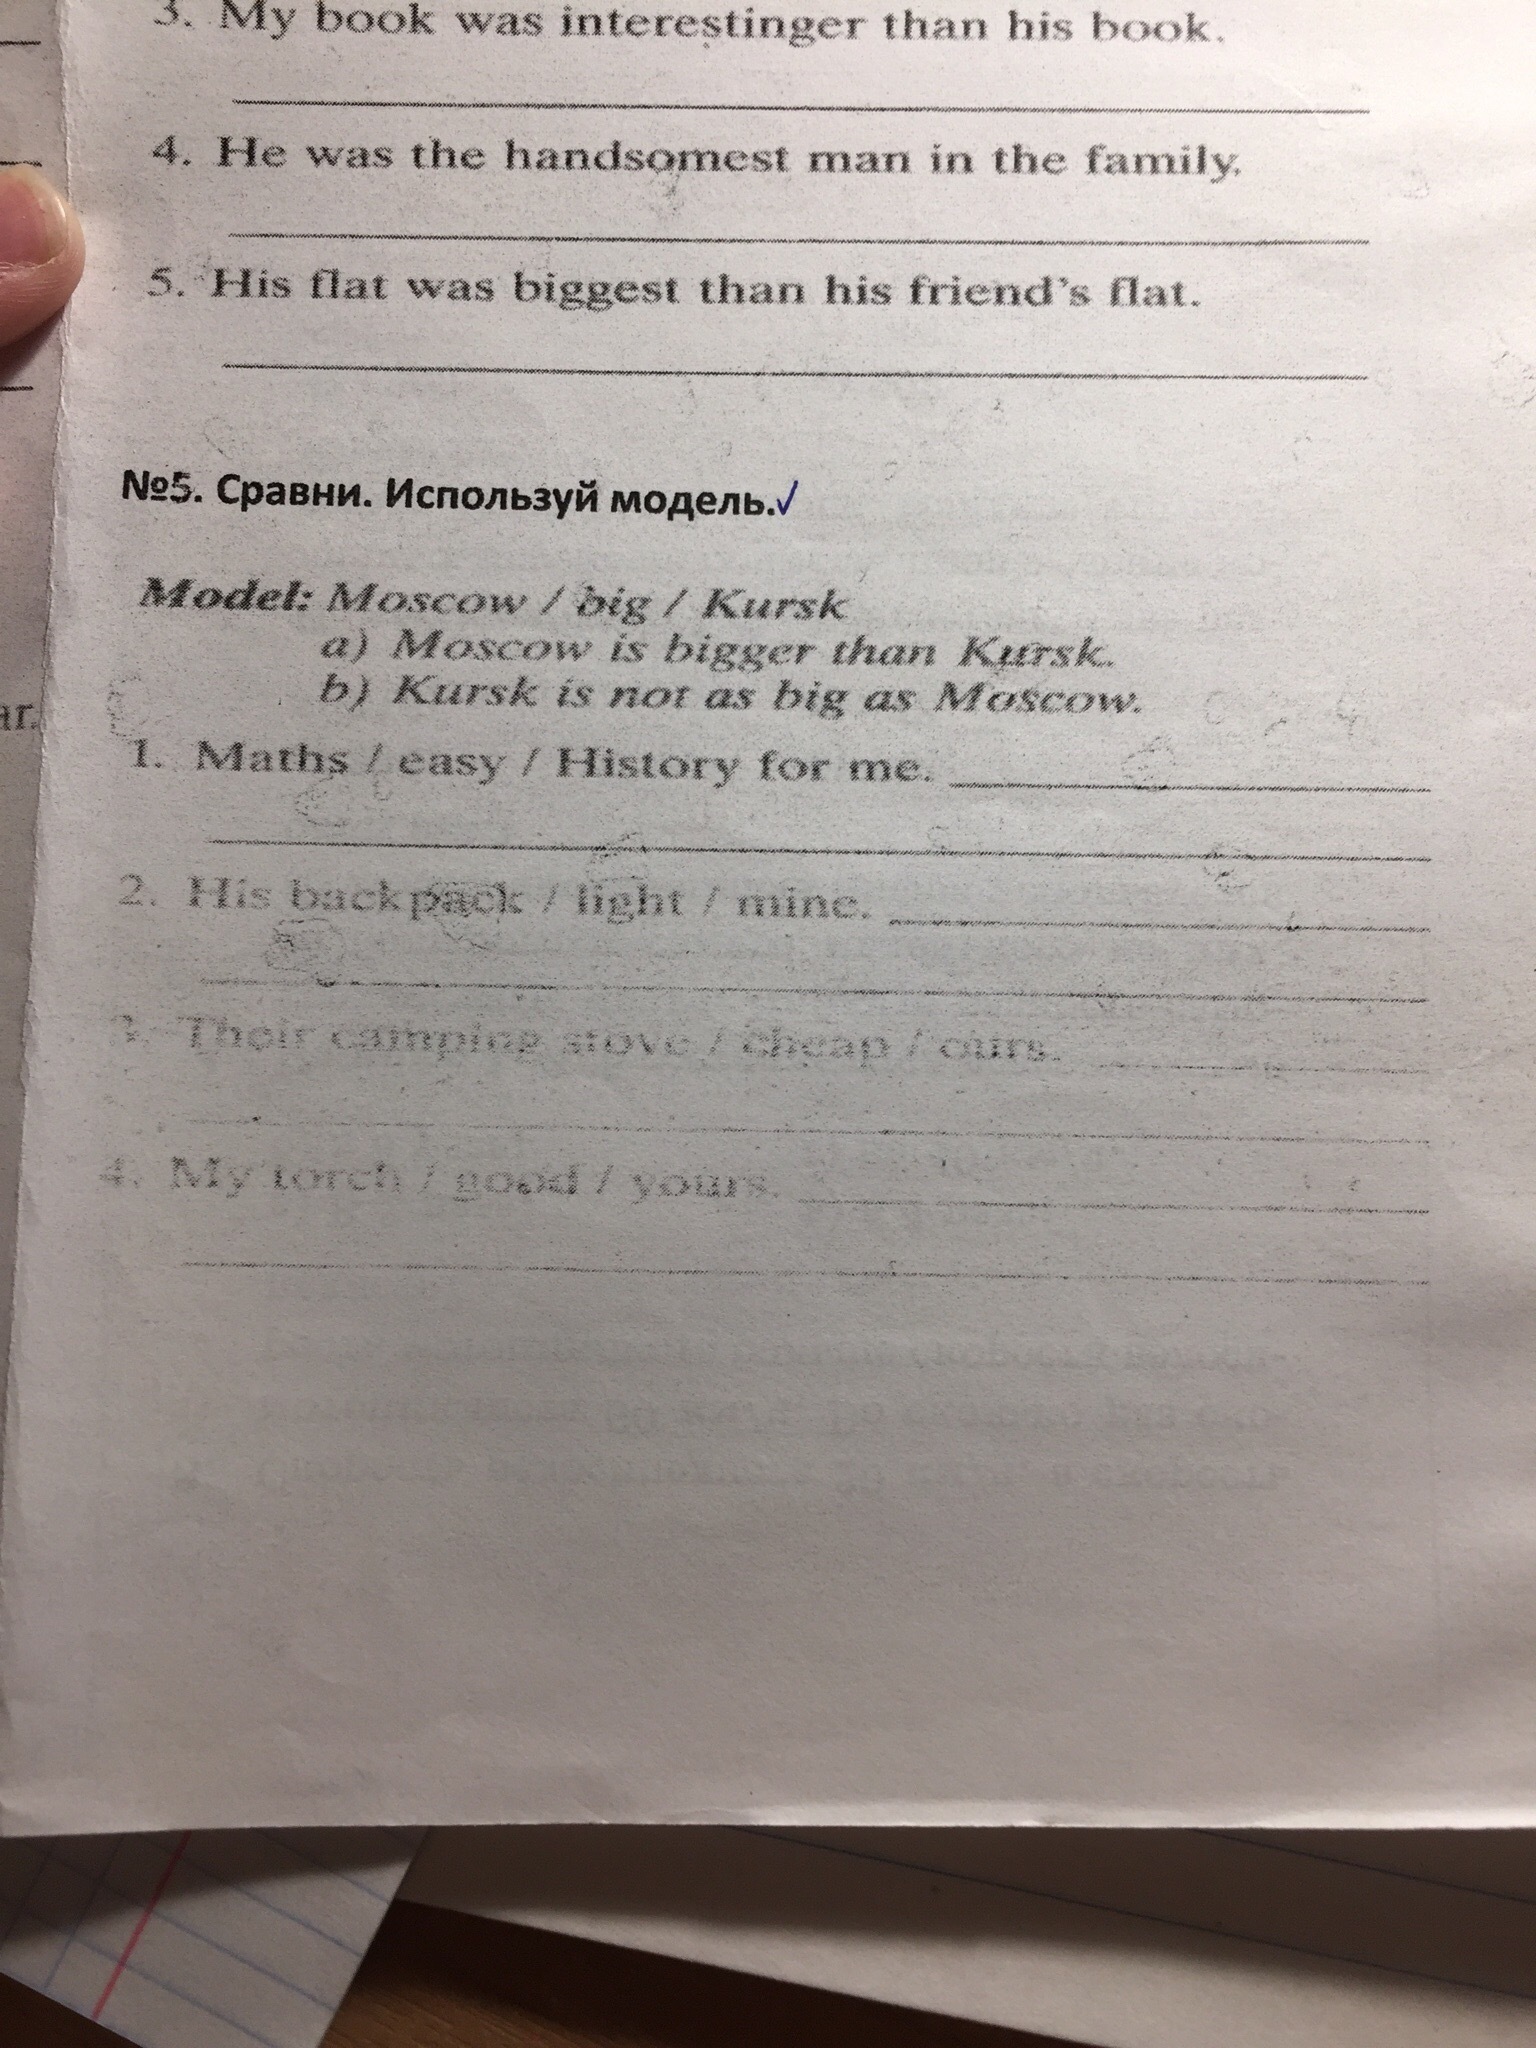 3. My book was interestinger than his book.
4. He was the handsomest man in the family.
5. His flat was biggest than his friend's flat.
№5. Сравни. Используй модель.
Model: Moscow / big / Kursk
a) Moscow is bigger than Kursk.
b) Kursk is not as big as Moscow.
ar.
1. Maths / easy / History for me.
2. His backpack / light / mine.
3. Their camping stove / cheap / ours.
4. My torch / good / yours.